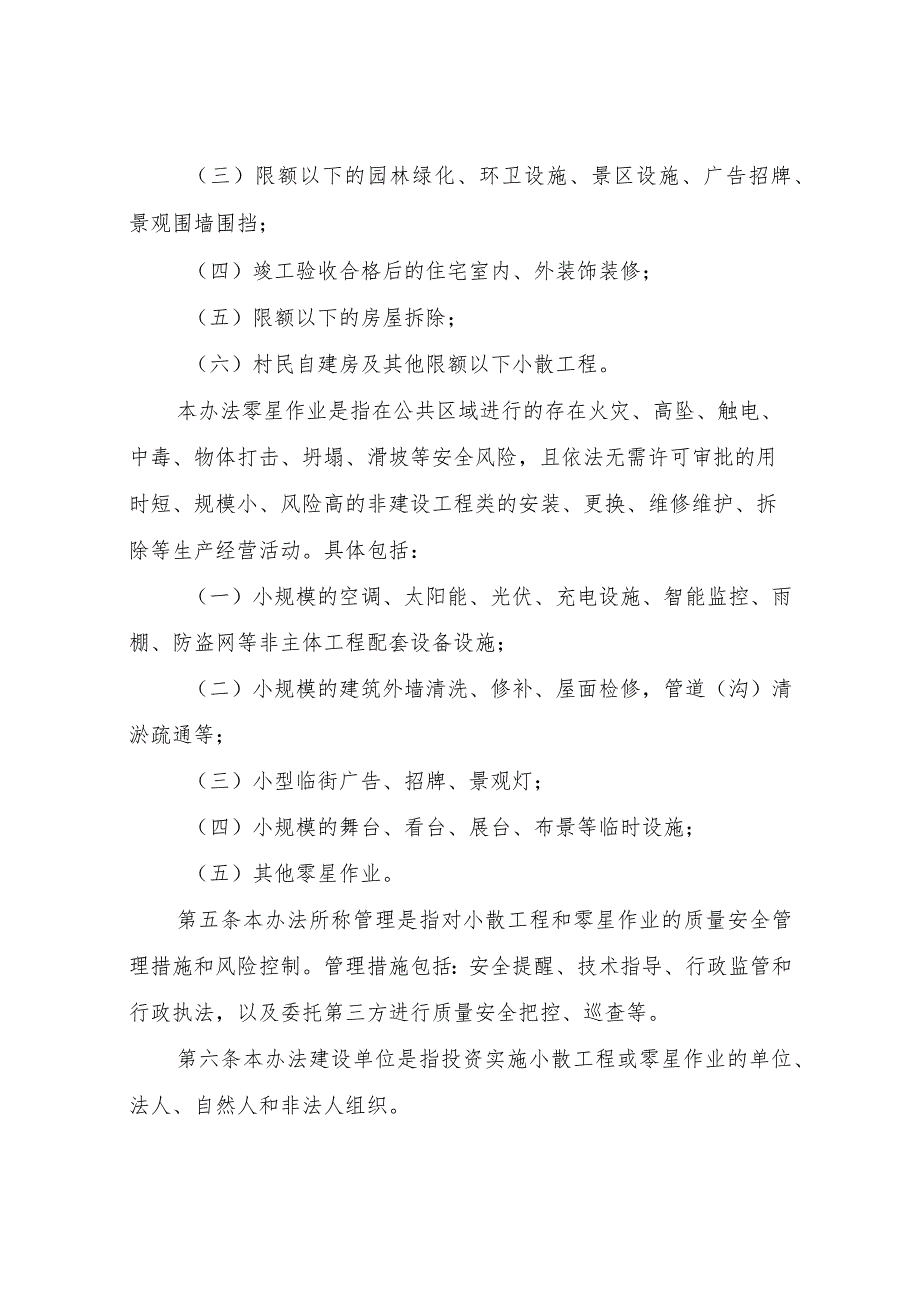 （三）限额以下的园林绿化、环卫设施、景区设施、广告招牌、
景观围墙围挡；
（四）竣工验收合格后的住宅室内、外装饰装修；
（五）限额以下的房屋拆除；
（六）村民自建房及其他限额以下小散工程。
本办法零星作业是指在公共区域进行的存在火灾、高坠、触电、
中毒、物体打击、坍塌、滑坡等安全风险，且依法无需许可审批的用
时短、规模小、风险高的非建设工程类的安装、更换、维修维护、拆
除等生产经营活动。具体包括：
（一）小规模的空调、太阳能、光伏、充电设施、智能监控、雨
棚、防盗网等非主体工程配套设备设施；
（二）小规模的建筑外墙清洗、修补、屋面检修，管道（沟）清
淤疏通等；
（三）小型临街广告、招牌、景观灯；
（四）小规模的舞台、看台、展台、布景等临时设施；
（五）其他零星作业。
第五条本办法所称管理是指对小散工程和零星作业的质量安全管
理措施和风险控制。管理措施包括：安全提醒、技术指导、行政监管和
行政执法，以及委托第三方进行质量安全把控、巡查等。
第六条本办法建设单位是指投资实施小散工程或零星作业的单位、
法人、自然人和非法人组织。